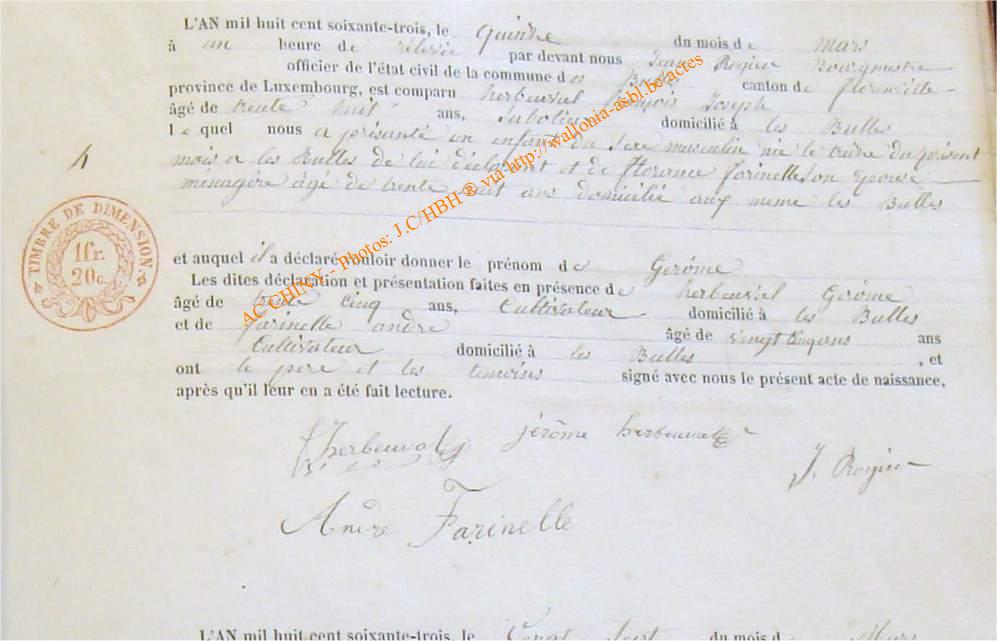 L'AN mil huit cent soixante-trois, le quinze du mois de mars
à un heure de rélevée par devant nous Jean Rogier Bourgmestre
officier de l'état civil de la commune des Bulles, canton de florenville
province de Luxembourg, est comparu herbeuval françois Joseph
âgé de trente huit ans, Sabotier domicilié à les Bulles
lequel nous a présanté un enfant du Sexe masculin née le treize du présent
mois a les Bulles de lui déclarant et de florence farinelle son épouse
ménagère âgé de trente huit ans domicilié aux meme les Bulles
4
TIMBRE DE DIMENSION.
1fr.
20c.
et auquel il a déclaré vouloir donner le prénom de Gerôme
Les dites déclaration et présentation faites en présence de herbeuval Gerôme
âgé de trente cinq ans, Cultivateur domicilié à les Bulles
et de farinelle andre âgé de vingt cinq ans ans
Cultivateur domicilié à les Bulles, et
ont le pere et les temoins signé avec nous le présent acte de naissance,
après qu'il leur en a été fait lecture.
herbeuval jérôme herbeuval
J. Rogier
Andre Farinelle
L'AN mil huit cent soixante-trois, le Vingt Sept du mois de Mars
AC CHINY - Photos: J.C/HBH ® via http://wallonia-asbl.be/actes